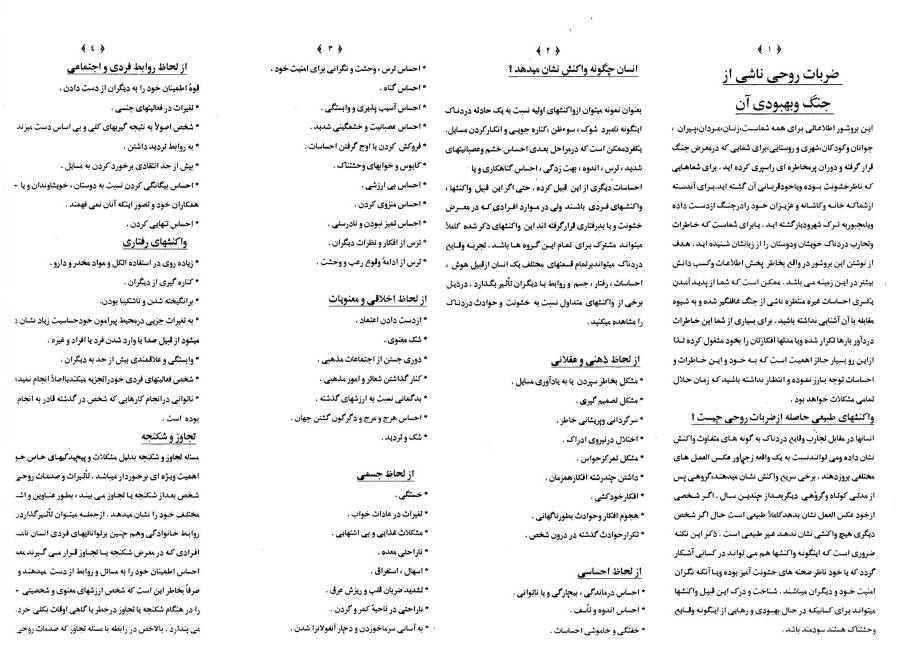 ﴿ ۱ ﴾
ضربات روحی ناشی از
جنگ وبهبودی آن
این بروشور اطلاعاتی برای همه شماست،زنان،مردان،پیران ،
جوانان وکودکان،شهری و روستایی،برای شمایی که درمعرض جنگ
قرار گرفته و دوران پرمخاطره ای راسپری کرده اید . برای شماهایی
که ناظرخشونت بوده ویاخودقربانی آن گشته اید،برای آندسته
ازشماکه خانه وکاشانه و عزیزان خود رادرجنگ ازدست داده
ویامجبوربه ترک شهرودیارگشته اید . یابرای شماست که خاطرات
وتجارب دردناک خویشان ودوستان را از زبانشان شنیده اید . هدف
از نوشتن این بروشور در واقع بخاطر پخش اطلاعات وکسب دانش
بیشتر در این زمینه می باشد . ممکن است که شما از پدید آمدن
یکسری احساسات غیره منتظره ناشی از جنگ غافلگیر شده و به شیوه
مقابله با آن آشنایی نداشته باشید . برای بسیاری از شما این خاطرات
دردآور بارها تکرار شده ویا مدتها افکارتان را بخود مشغول کرده لذا
ازاین رو بسیار حائز اهمیت است که به خود و این خاطرات و
احساسات توجه بارز نموده و انتظار نداشته باشید که زمان حلال
تمامی مشکلات خواهد بود .
واکنشهای طبیعی حاصله ازضربات روحی چیست ؟
انسانها در مقابل تجارب وقایع دردناک به گونه های متفاوت واکنش
نشان داده ومی توانندنسبت به یک واقعه زجرآور عکس العمل های
مختلفی بروزدهند . برخی سریع واکنش نشان میدهند،گروهی پس
از مدتی کوتاه وگروهی دیگربعداز چندین سال . اگر شخصی
ازخود عکس العمل نشان بدهدکاملاً طبیعی است حال اگر شخص
دیگری هیچ واکنشی نشان ندهد غیر طبیعی است . ذکر این نکته
ضروری است که اینگونه واکنشها هم می تواند در کسانی آشکار
گردد که یا خود ناظر صحنه های خشونت آمیز بوده ویا آنکه نگران
امنیت خود و دیگران میباشند . شناخت و درک این قبیل واکنشها
میتواند برای کسانیکه در حال بهبودی و رهایی از اینگونه وقایع
وحشتناک هستند سودمند باشد .
﴿ ۲ ﴾
انسان چگونه واکنش نشان میدهد ؟
بعنوان نمونه میتوان ازواکنشهای اولیه نسبت به یک حادثه دردناک
اینگونه نامبرد شوک ، سوءظن ،کناره جویی و انکارکردن مسایل.
یکفردممکن است که درمراحل بعدی احساس خشم وعصبانیتهای
شدید ، ترس ، اندوه ، بهت زدگی ، احساس گناهکاری و یا
احساسات دیگری از این قبیل کرده . حتی اگر این قبیل واکنشها ،
واکنشهای فردی باشند ولی در موارد افرادی که در معرض
خشونت ویا بدرفتاری قرارگرفته اند این واکنشهای ذکر شده کاملاً
میتواند مشترک برای تمام این گروه ها باشد . تجربه وقایع
دردناک میتواندبرتمام قسمتهای مختلف یک انسان ازقبیل هوش ،
احساسات ، رفتار ، جسم و روابط با دیگران تأثیر بگذارد . درذیل
برخی از واکنشهای متداول نسبت به خشونت و حوادث دردناک
را مشاهده میکنید .
از لحاظ ذهنی و عقلانی
* مشکل بخاطر سپردن یا به یادآوری مسایل .
* مشکل تصمیم گیری .
* سرگردانی وپریشانی خاطر .
* اختلال درنیروی ادراک .
* مشکل تمرکزحواس .
* داشتن چندرشته افکارهمزمان .
* افکارخودکشی .
* هجوم افکار وحوادث بطورناگهانی .
* تکرارحوادث گذشته در درون شخص .
از لحاظ احساسی
* احساس درماندگی ، بیچارگی و یا ناتوانی .
* احساس اندوه و تأسف .
* خفتگی و خاموشی احساسات .
﴿ ۳ ﴾
* احساس ترس ، وحشت و نگرانی برای امنیت خود .
* احساس گناه .
* احساس آسیب پذیری و وابستگی .
* احساس عصبانیت و خشمگینی شدید .
* فروکش کردن یا اوج گرفتن احساسات .
* کابوس و خوابهای وحشتناک .
* احساس بی ارزشی .
* احساس منزوی کردن .
* احساس تمیز نبودن و نادرستی .
* ترس از افکار و نظرات دیگران .
* ترس از ادامهٔ وقوع رعب و وحشت .
از لحاظ اخلاقی و معنویات
* ازدست دادن اعتماد .
* شک معنوی .
* دوری جستن از اجتماعات مذهبی .
* کنار گذاشتن شعائر و امور مذهبی .
* بدگمانی نسبت به ارزشهای گذشته .
* احساس هرج و مرج و دگرگون گشتن جهان .
* شک و تردید .
از لحاظ جسمی
* خستگی .
* تغیرات در عادات خواب .
* مشکلات غذایی و بی اشتهایی .
* ناراحتی معده .
* اسهال ، استفراق .
* تشدید ضربان قلب و ریزش عرق .
* ناراحتی در ناحیهٔ کمر و گردن .
* به آسانی سرماخوردن و دچار آنفولانزا شدن .
﴿ ٤ ﴾
از لحاظ روابط فردی و اجتماعی
قوهٔ اطمینان خود را به دیگران از دست دادن .
* تغیرات در فعالیتهای جنسی .
* شخص اصولاً به نتیجه گیریهای کلی و بی اساس دست میزند
* به روابط تردید داشتن .
* بیش از حد انتقادی برخورد کردن به مسایل .
* احساس بیگانگی کردن نسبت به دوستان ، خویشاوندان و یا -
همکاران خود و تصور اینکه آنان نمی فهمند .
* احساس تنهایی کردن .
واکنشهای رفتاری
* زیاده روی در استفاده الکل و مواد مخدر و دارو .
* کناره گیری از دیگران .
* برانگیخته شدن و ناشکیبا بودن.
* به تغیرات جزیی درمحیط پیرامون خودحساسیت زیاد نشان د
میشود از قبیل صدا یا وارد شدن فرد یا افراد و غیره .
* وابستگی و علاقمندی بیش از حد به دیگران .
* شخص فعالیتهای فردی خودراتجزیه میکندیااصلاً انجام نمید
* ناتوانی درانجام کارهایی که شخص در گذشته قادر به انجام
بوده است .
تجاوز و شکنجه
مسئله تجاوز و شکنجه بدلیل مشکلات و پیچیدگیهای خاص خو
اهمیت ویژه ای برخوردار میباشد . تأثیرات و صدمات روحی
شخص بعداز شکنجه یا تجاوز می بیند ، بطور عناوین و اش
مختلف خود را نشان میدهد . ازجمله میتوان تأثیرگذاردر
روابط خانوادگی وهم چنین برتوانائیهای فردی انسان نامـ
افرادی که در معرض شکنجه یا تجاوز قرار می گیرند معـ
احساس اطمینان خود را به مسائل و روابط از دست میدهند و
صرفاً بخاطر این است که شخص ارزشهای معنوی و شخصیتی -
را در هنگام شکنجه یا تجاوز درخطر یا گاهی اوقات بکلی خرد.
می پندارد . بالاخص در رابطه با مسئله تجاوز که صدمات روحی